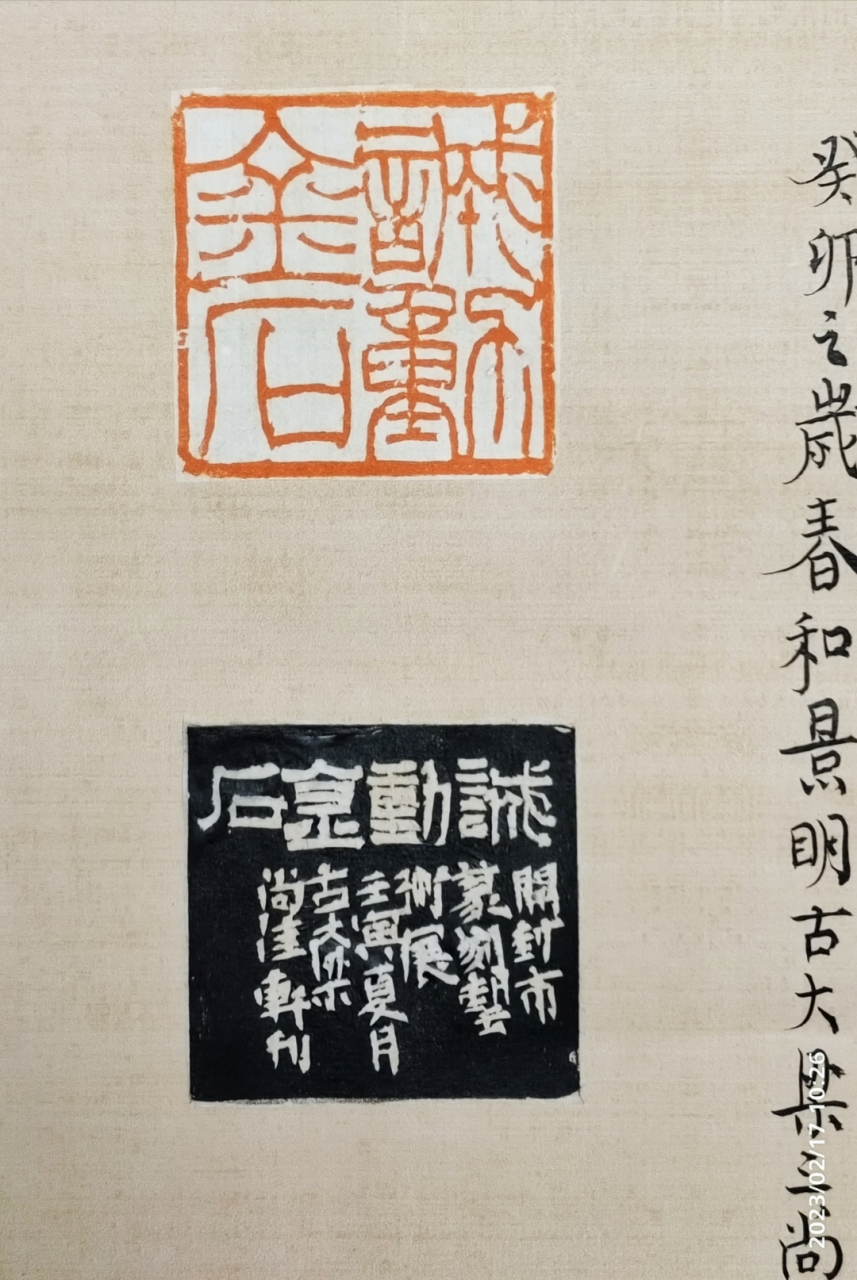 癸卯之歲春和景明古大梁之尚
誠動
金石
誠動金石
開封市
篆刻藝
術展
壬寅夏月
古大梁
尚 軒刊
2023/02/17 10:26